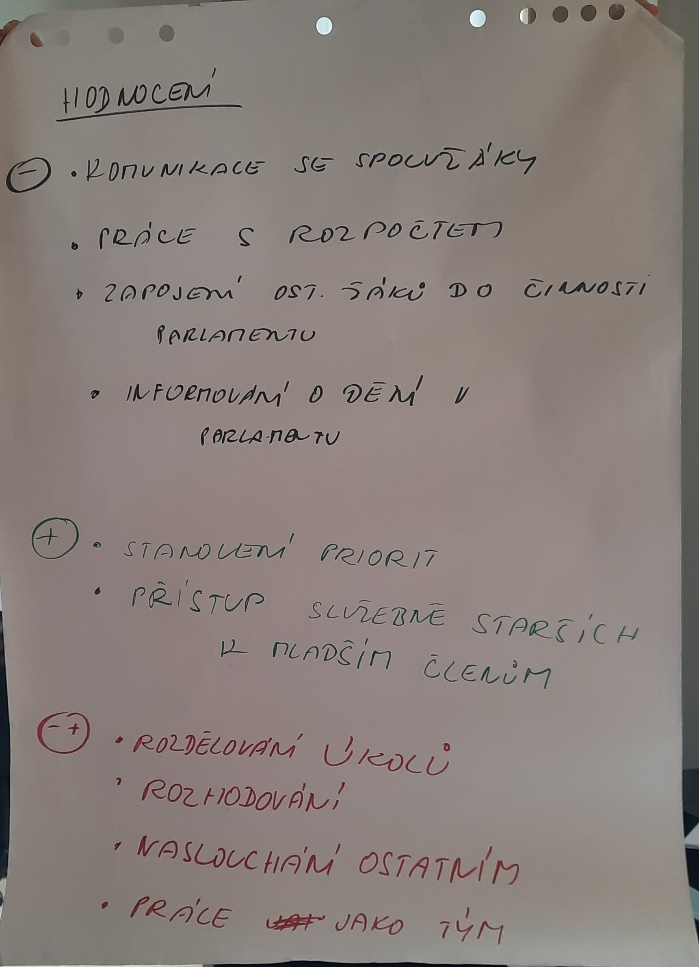 HODNOCENÍ
- • KOMUNIKACE SE SPOLUŽÁKY
• PRÁCE S ROZPOČTEM
• ZAPOJENÍ OST. ŽÁKŮ DO ČINNOSTÍ
PARLAMENTU
• INFORMOVÁNÍ O DĚNÍ V
PARLAMENTU
+ • STANOVENÍ PRIORIT
• PŘÍSTUP SLUŽEBNĚ STARŠÍCH
K MLADŠÍM ČLENŮM
-+ • ROZDĚLOVÁNÍ ÚKOLŮ
• ROZHODOVÁNÍ
• NASLOUCHÁNÍ OSTATNÍM
• PRÁCE JAKO TÝM